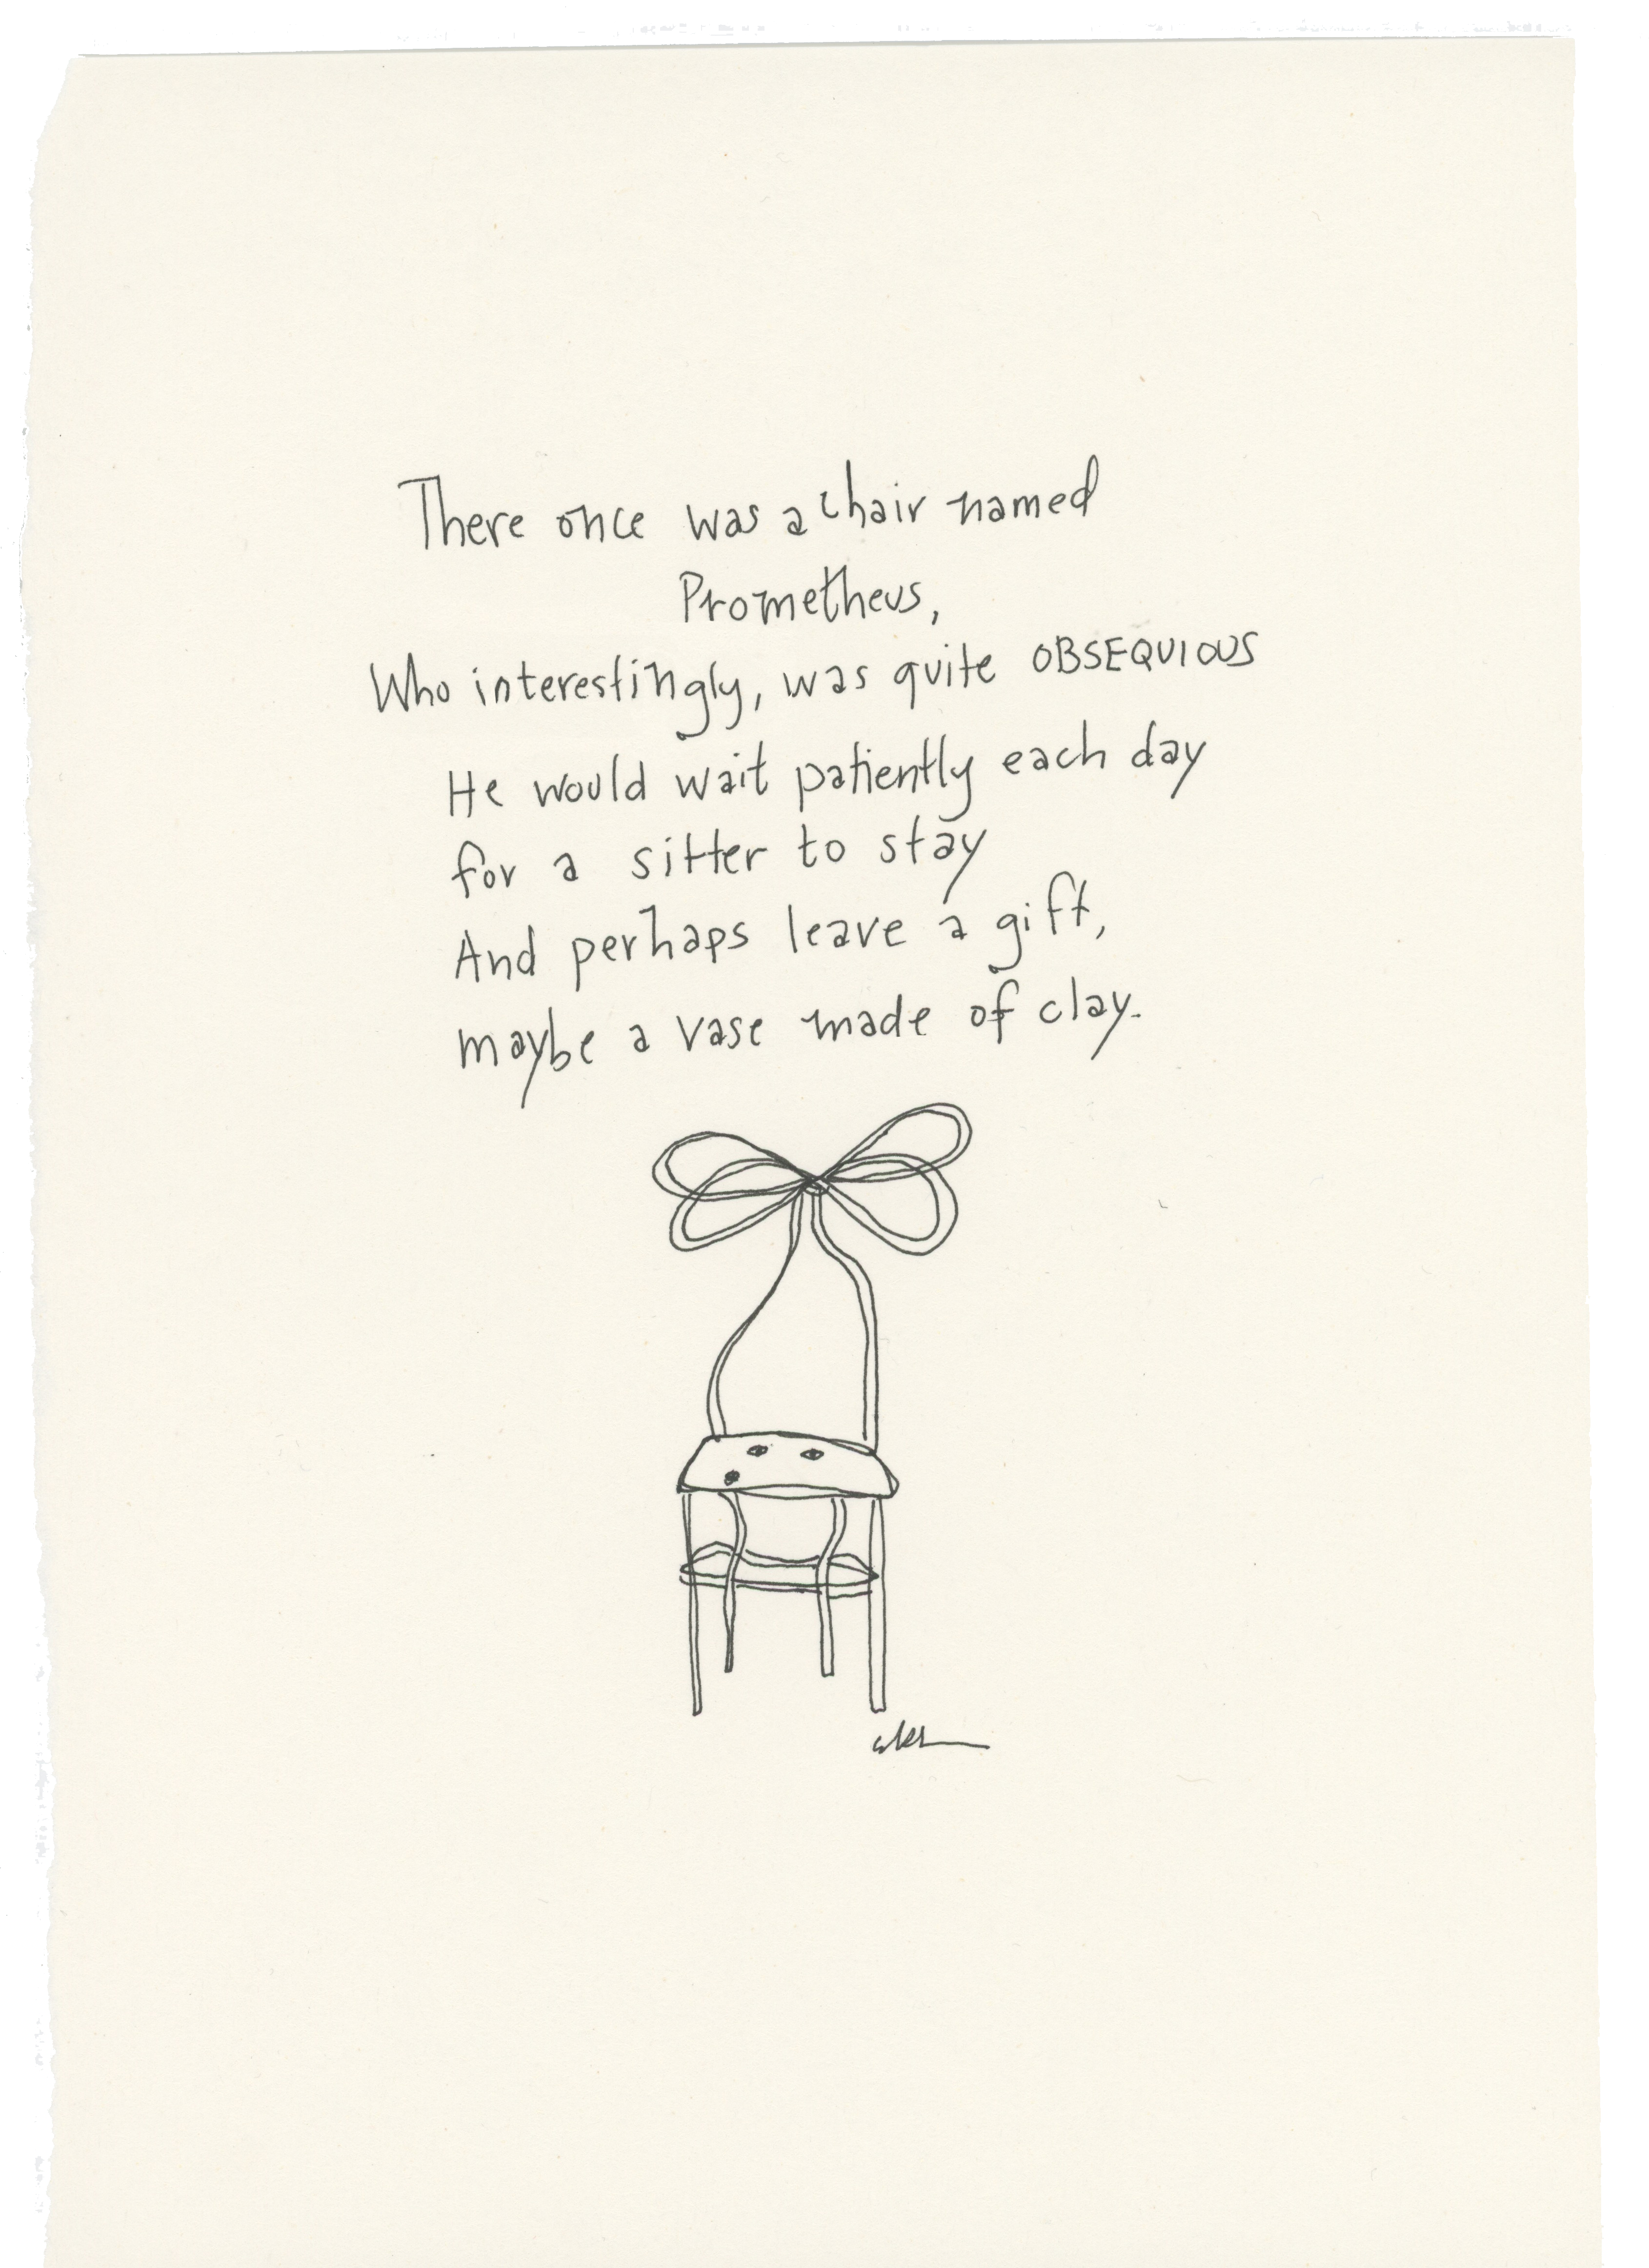 There once was a chair named
Prometheus,
Who interestingly, was quite OBSEQUIOUS
He would wait patiently each day
for a sitter to stay
And perhaps leave a gift,
maybe a vase made of clay.